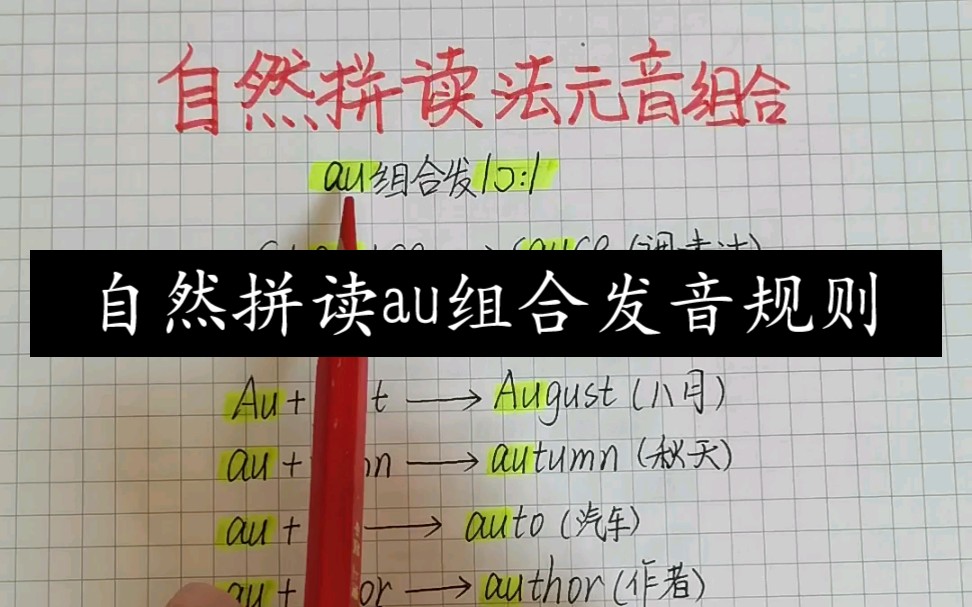 自然拼读法元音组合
au组合发/ɔ:/
自然拼读au组合发音规则
Au+ t → August (八月)
au+ n → autumn (秋天)
au+ → auto (汽车)
au+ or → author (作者)